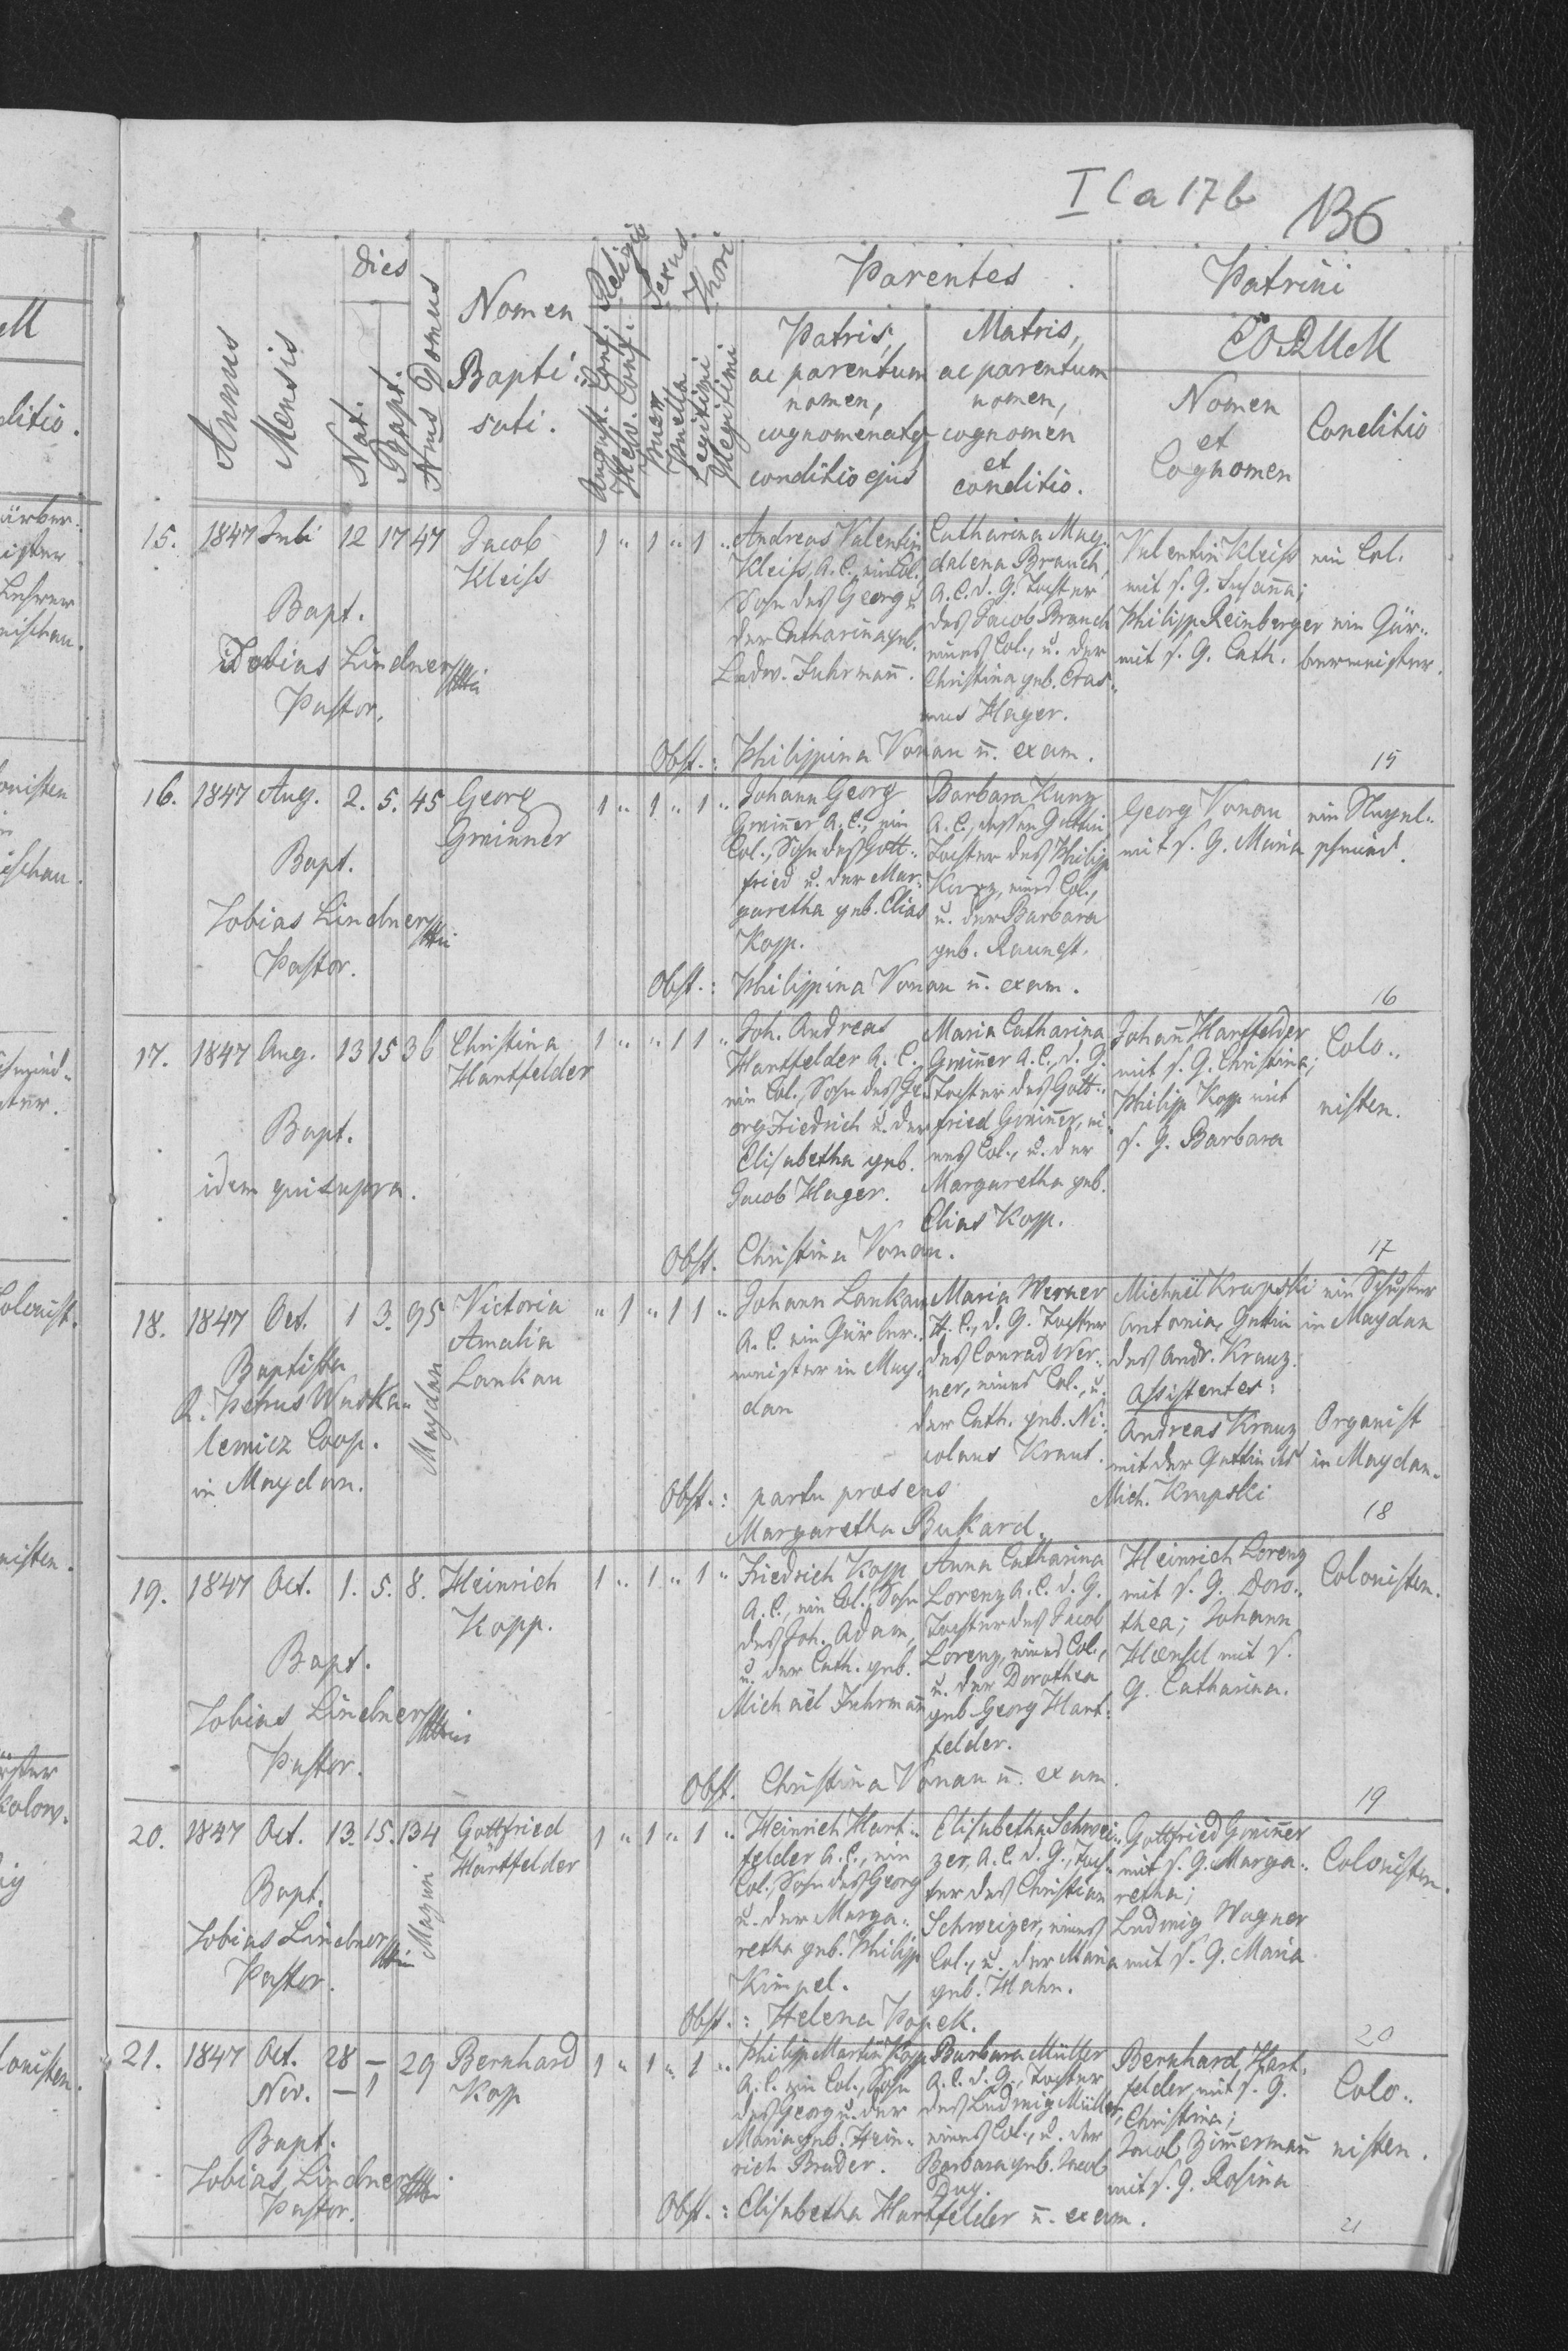 I C a 17 b
136
Annus
Mensis
Dies
Nat.
Bapt.
Nrus Domus
Nomen
Bapti-
sati.
Religio
August. Conf.
Helv. Conf.
Sexus
Puer
Puella
Thori
Legitimi
Illegitimi
Parentes
Patris,
ac parentum
nomen,
cognomenatq
conditio ejus
Matris,
ac parentum
nomen,
cognomen
et
conditio.
Patrini
Nomen
et
Cognomen
Conditio
15. 1847 Juli 12 17 47 Jacob
Kleiss
1 " 1 " 1 "
Bapt.
Tobias Lindner
Pastor.
Andreas Valentin
Kleiss, A. C., ein Col.
Sohn des Georg u.
der Catharina geb.
Ludw. Fuhrmañ.
Catharina Mag-
dalena Brauch,
A. C. d. G. Tochter
des Jacob Brauch
eines Col., u. der
Christina geb. Eras-
mus Hager.
Valentin Kleiss
mit s. G. Susaña;
Philipp Reinberger
mit s. G. Cath.
ein Col.
ein Gär-
bermeister.
Obst.: Philippina Vonau u. exam.
15
16. 1847 Aug. 2. 5. 45 Georg
Greinner
1 " 1 " 1 "
Bapt.
Tobias Lindner
Pastor.
Johann Georg
Greiñer A. C., ein
Col., Sohn des Gott-
fried u. der Mar-
garetha geb. Elias
Kopp.
Barbara Kunz
A. C., dessen Gattin
Tochter des Philip
Kunz, eines Col.,
u. der Barbara
geb.
Georg Vonau
mit s. G. Maria
ein Nagel-
schmied.
Obst.: Philippina Vonau u. exam.
16
17. 1847 Aug. 13 15 36 Christina
Hartfelder
1 " " 1 1 "
Bapt.
idem qui supra.
Joh. Andreas
Hartfelder A. C.
ein Col., Sohn des Ge-
org Friedrich u. der
Elisabetha geb.
Jacob Hager.
Maria Catharina
Greiñer A. C., d. G.
Tochter des Gott-
fried Greiñer, ei-
nes Col., u. der
Margaretha geb.
Elias Kopp.
Johañ Hartfelder
mit s. G. Christina;
Philipp Kopp mit
s. G. Barbara
Colo-
nisten.
Obst. Christina Vonau.
17
18. 1847 Oct. 1 3. 95 Victoria
Amalia
Lankau
" 1 " 1 1 "
Maydan
Baptista
R. Petrus Waska-
lewicz Coop.
in Maydan.
Johann Lankau
A. C. ein Gärber-
meister in May-
dan
Maria Werner
H. C., d. G. Tochter
des Conrad Wer-
ner, eines Col., u.
der Cath. geb. Ni-
colaus Kraus.
Michaël Krupski
Antonia, Gattin
des Andr. Krauz.
Assistentes:
Andreas Krauz
mit der Gattin des
Mich. Krupski
ein Schuster
in Maydan
Organist
in Maydan.
Obst.: partu praesens
Margaretha Bukard.
18
19. 1847 Oct. 1. 5. 8. Heinrich
Kopp.
1 " 1 " 1 "
Bapt.
Tobias Lindner
Pastor.
Friedrich Kopp
A. C., ein Col., Sohn
des Joh. Adam,
u. der Cath. geb.
Michaël Fuhrmañ
Anna Catharina
Lorenz A. C. d. G.
Tochter des Jacob
Lorenz, eines Col.,
u. der Dorothea
geb. Georg Hart-
felder.
Heinrich Lorenz
mit s. G. Doro-
thea; Johann
Hensel mit s.
G. Catharina.
Colonisten.
Obst. Christina Vonau u. exam.
19
20. 1847 Oct. 13. 15. 134 Gottfried
Hartfelder
1 " 1 " 1 "
Bapt.
Tobias Lindner
Pastor.
Heinrich Hart-
felder A. C., ein
Col., Sohn des Georg
u. der Marga-
retha geb. Philipp
Kimpel.
Elisabetha Schwei-
zer, A. C. d. G., Toch-
ter des Christian
Schweizer, eines
Col., u. der Maria
geb. Hahn.
Gottfried Greiñer
mit s. G. Marga-
retha;
Ludwig Wagner
mit s. G. Maria
Colonisten.
Obst.: Helena Popek.
20
21. 1847 Oct. 28 — 29 Bernhard
Nov. — 1 Kopp
1 " 1 " 1 "
Bapt.
Tobias Lindner
Pastor.
Philipp Martin Kopp
A. C. ein Col., Sohn
des Georg u. der
Maria geb. Hein-
rich Bruder.
Barbara Müller
A. C. d. G., Tochter
des Ludwig Müller,
eines Col., u. der
Barbara geb. Jacob
Bernhard Hart-
felder, mit s. G.
Christina;
Jacob Zim̃ermañ
mit s. G. Rosina
Colo-
nisten.
Obst.: Elisabetha Hartfelder u. exam.
21